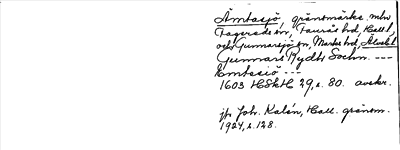 Ämtasjö, gränsmärke mln
Fagereds sn, Faurås hd, Hall. l.,
och Gunnarsjö sn, Marks hd, Älvsb. l.
Gunnars Rydhs Sochn. ---
Emtasiö ---
1603 HSkH 29, s. 80. avskr.
jfr Joh. Kalén, Hall. gränsm.
1924, s. 128.